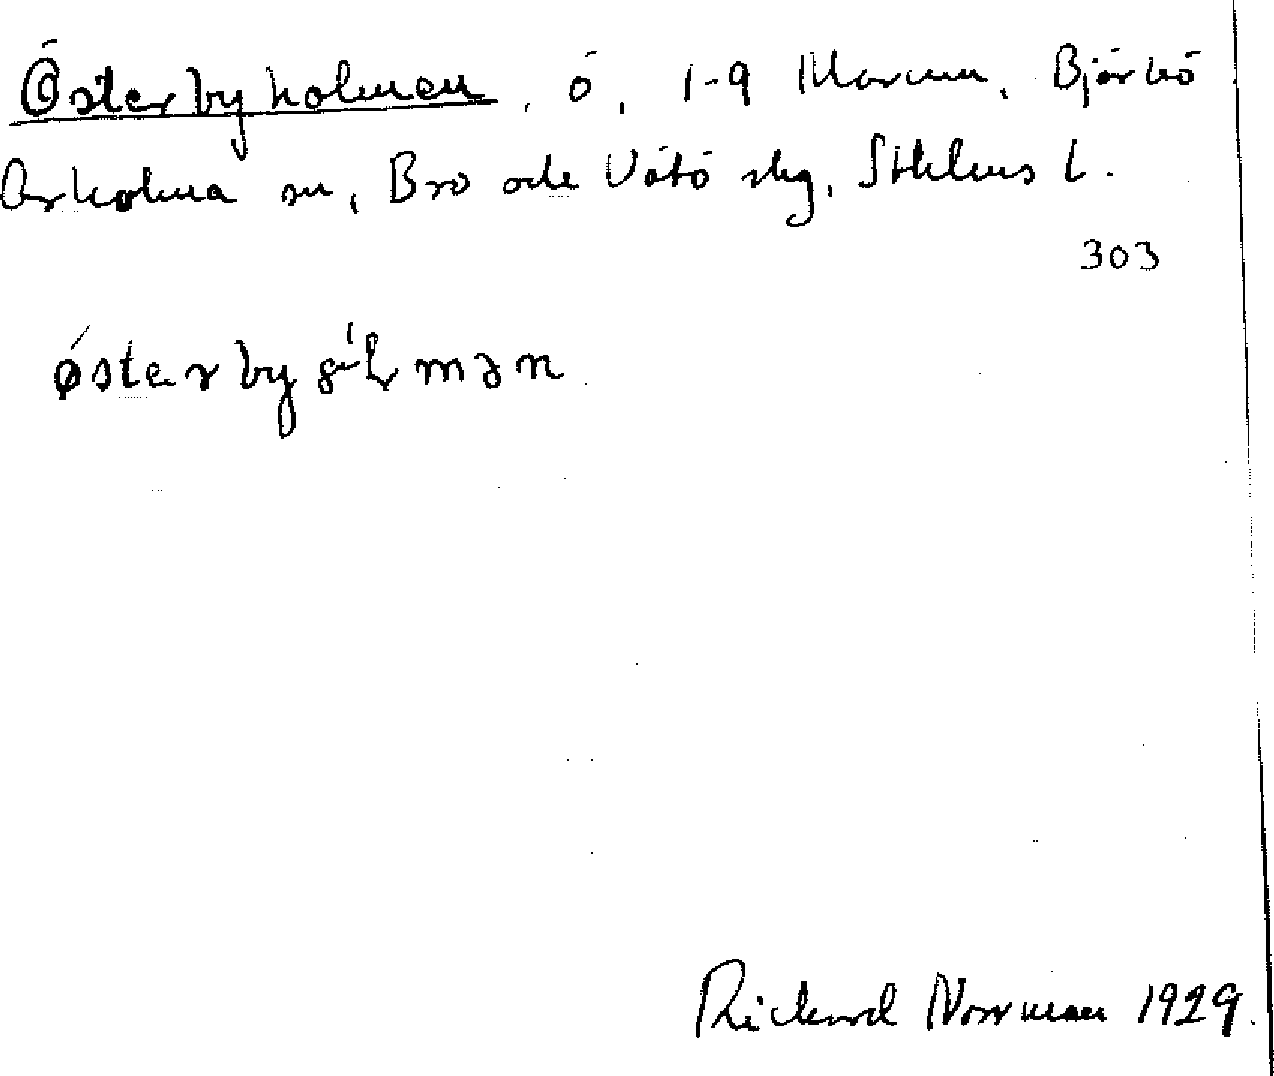 Österbyholmen, ö, 1-9 Marum, Björkö
Arholma sn, Bro och Vätö skg, Sthlms l.
303
Rickard Norrman 1929.